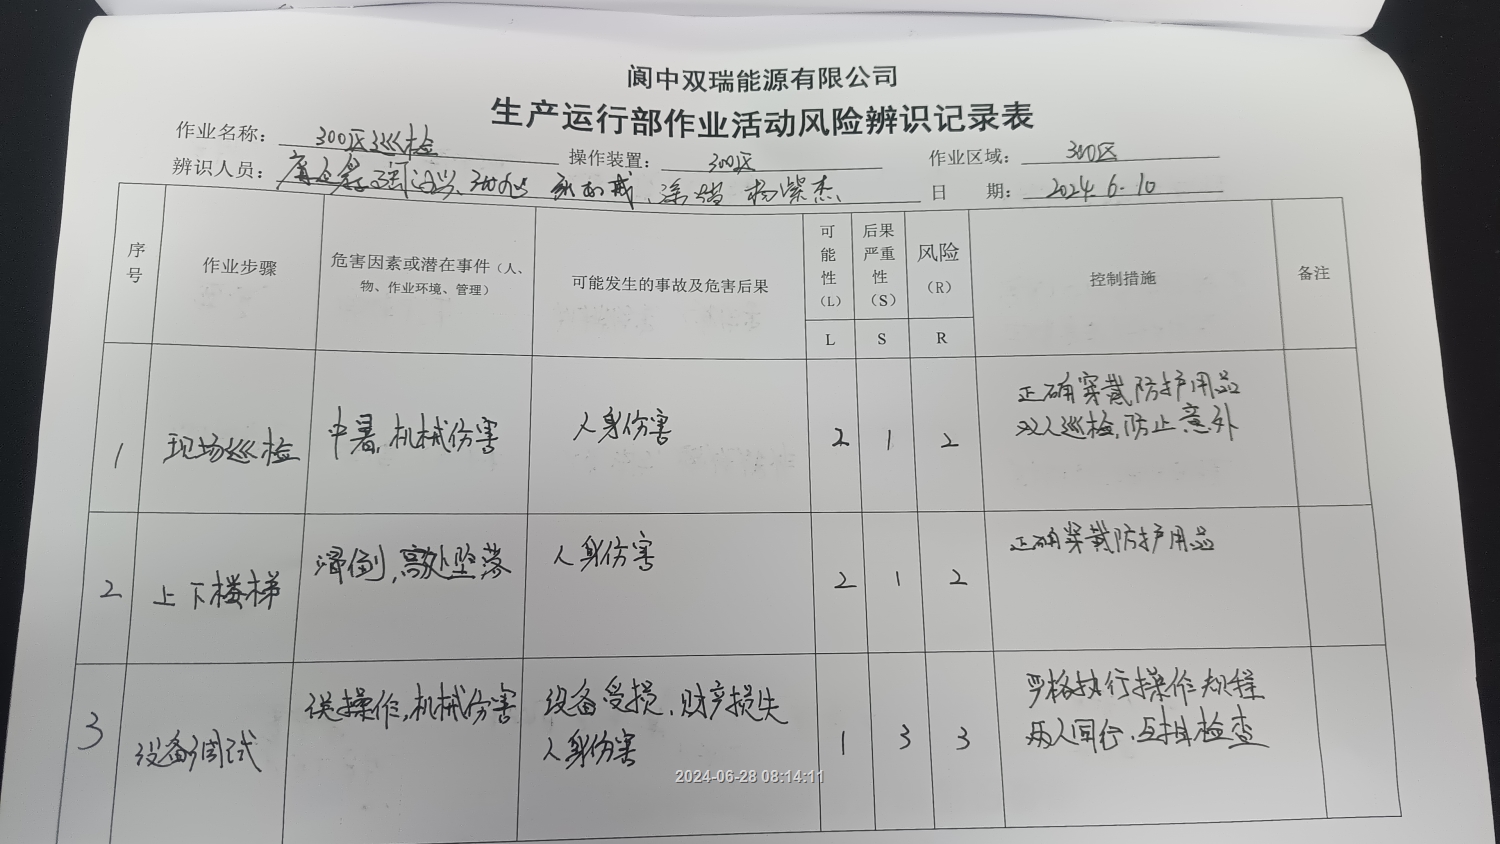 阆中双瑞能源有限公司
生产运行部作业活动风险辨识记录表
作业名称： 300区巡检 操作装置： 300区 作业区域： 300区
辨识人员： 杨紫杰 日 期： 2024.6.10
序号 作业步骤 危害因素或潜在事件（人、物、作业环境、管理） 可能发生的事故及危害后果 可能性（L） 后果严重性（S） 风险（R） 控制措施 备注
L S R
1 现场巡检 中暑，机械伤害 人身伤害 2 1 2 正确穿戴防护用品
双人巡检，防止意外
2 上下楼梯 滑倒，高处坠落 人身伤害 2 1 2 正确穿戴防护用品
3 设备调试 误操作，机械伤害 设备受损、财产损失 1 3 3 严格执行操作规程
人身伤害 两人同行、检查
2024-06-28 08:14:11